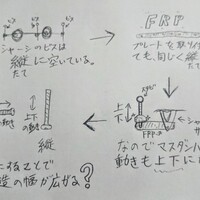 シャーシのビスは
縦に空いている。
たて
FRP
プレートを取り付
ても、同じく縦
たて
上下
の動き
縦
上
下
FRP
シャー
なのでマスダンパ
動きも上下に
ことで
造の幅が広がる?